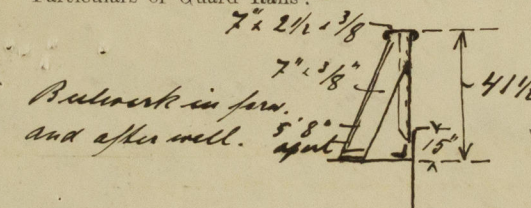 Particulars of Guard Rails.
7" x 2 1/2 x 3/8
7" x 3/8"
41 1/2
Bulwark in forw.
and after well.
5' 8"
apart
15"